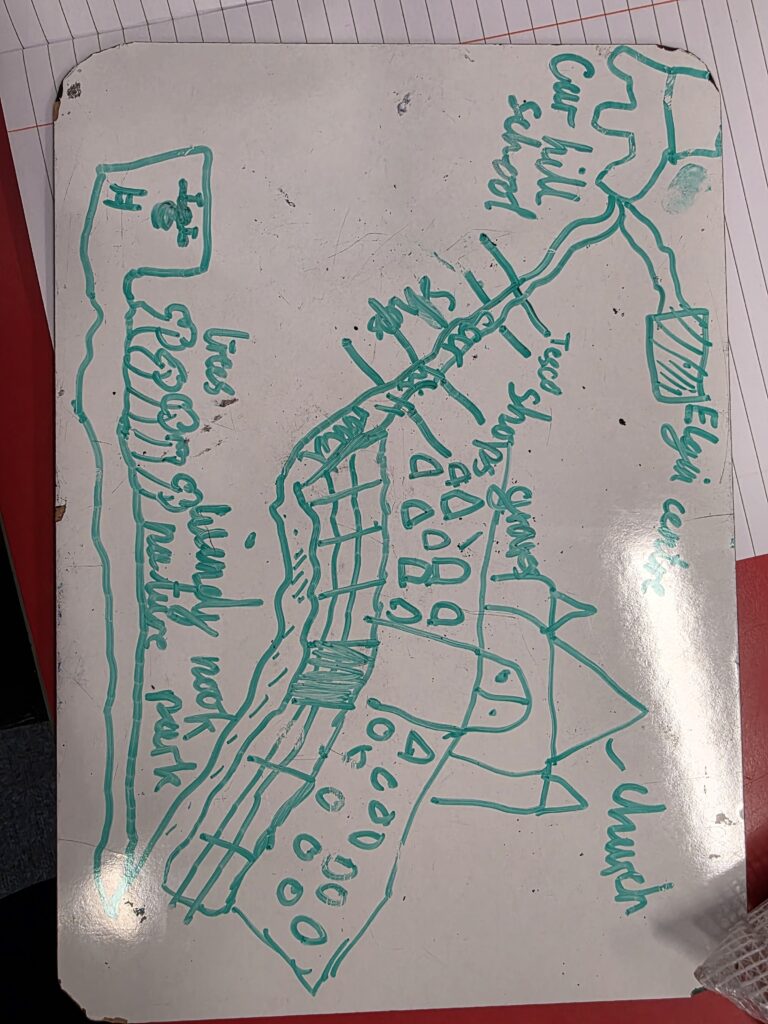 Elgin centre
church
Tesco
shops
graves
Car hill
school
trees
windy nook
nature park
H